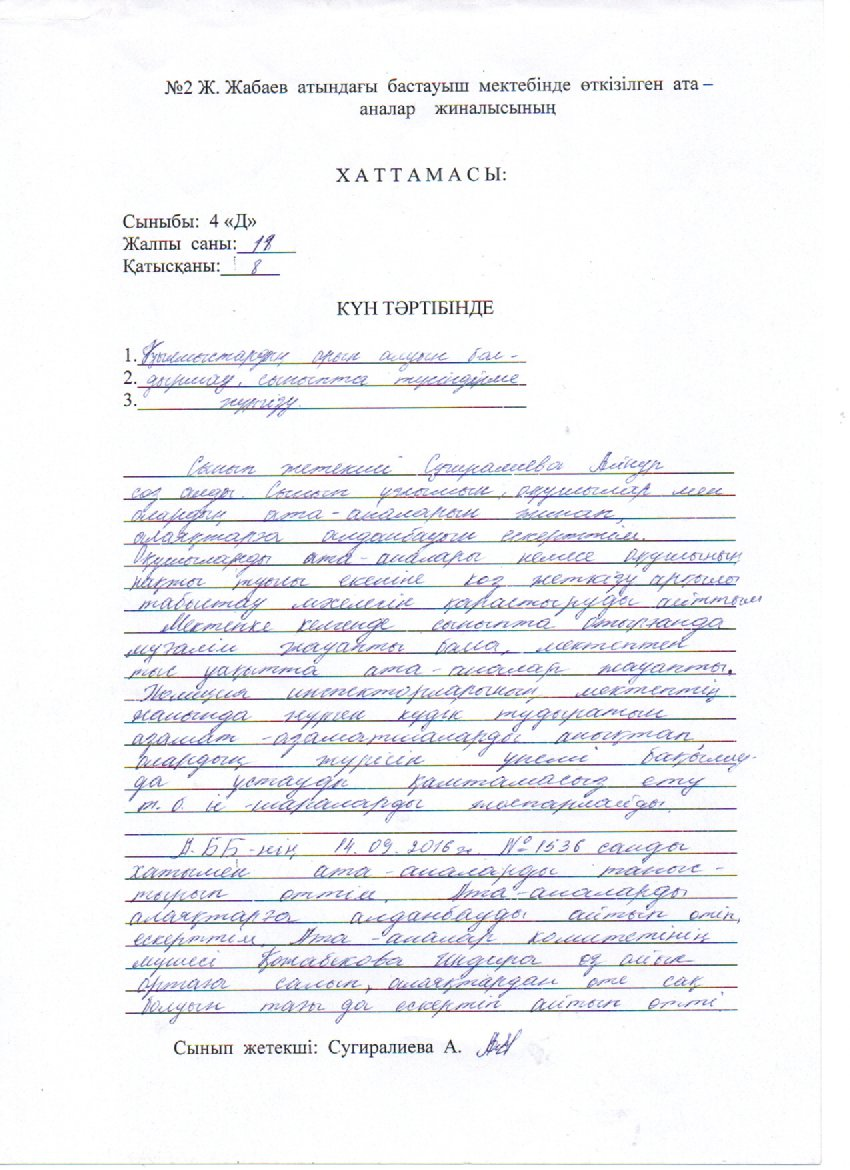 №2 Ж. Жабаев атындағы бастауыш мектебінде өткізілген ата –
аналар жиналысының
Х А Т Т А М А С Ы:
Сыныбы: 4 «Д»
Жалпы саны: 18
Қатысқаны: 8
КҮН ТӘРТІБІНДЕ
1. Қылмыстардың орын алуын бол-
2. дырмау, сыныпта түсіндірме
3. жүргізу.
Сынып жетекшісі Сугиралиева Айнур
сөз алды. Сынып ұжымын, оқушылар мен
олардың ата-аналарын жинап,
алаяқтарға алданбауын ескерттім.
Оқушыларды ата-аналары немесе оқушының
нақты туысы екеніне көз жеткізу арқылы
табыстау мәселесін қарастыруды айттым
Мектепке келгенде сыныпта отырғанда
мұғалім жауапты бола, мектептен
тыс уақытта ата-аналар жауапты.
инспекторларының мектептің
жанында жүрген күдік тудыратын
азамат-азаматшаларды анықтап,
олардың жүрісін үнемі бақылау-
да ұстауды қамтамасыз ету
т.б. іс-шараларды жоспарлайды.
А.ББ-нің 14.09.2016 ж. №1536 санды
хатымен ата-аналарды таныс-
тырып өттім. Ата-аналарды
алаяқтарға алданбауды айтып өтіп,
ескерттім. Ата-аналар комитетінің
мүшесі Индира өз ойын
ортаға салып, алаяқтардан өте сақ
болуын тағы да ескертіп айтып өтті.
Сынып жетекші: Сугиралиева А.